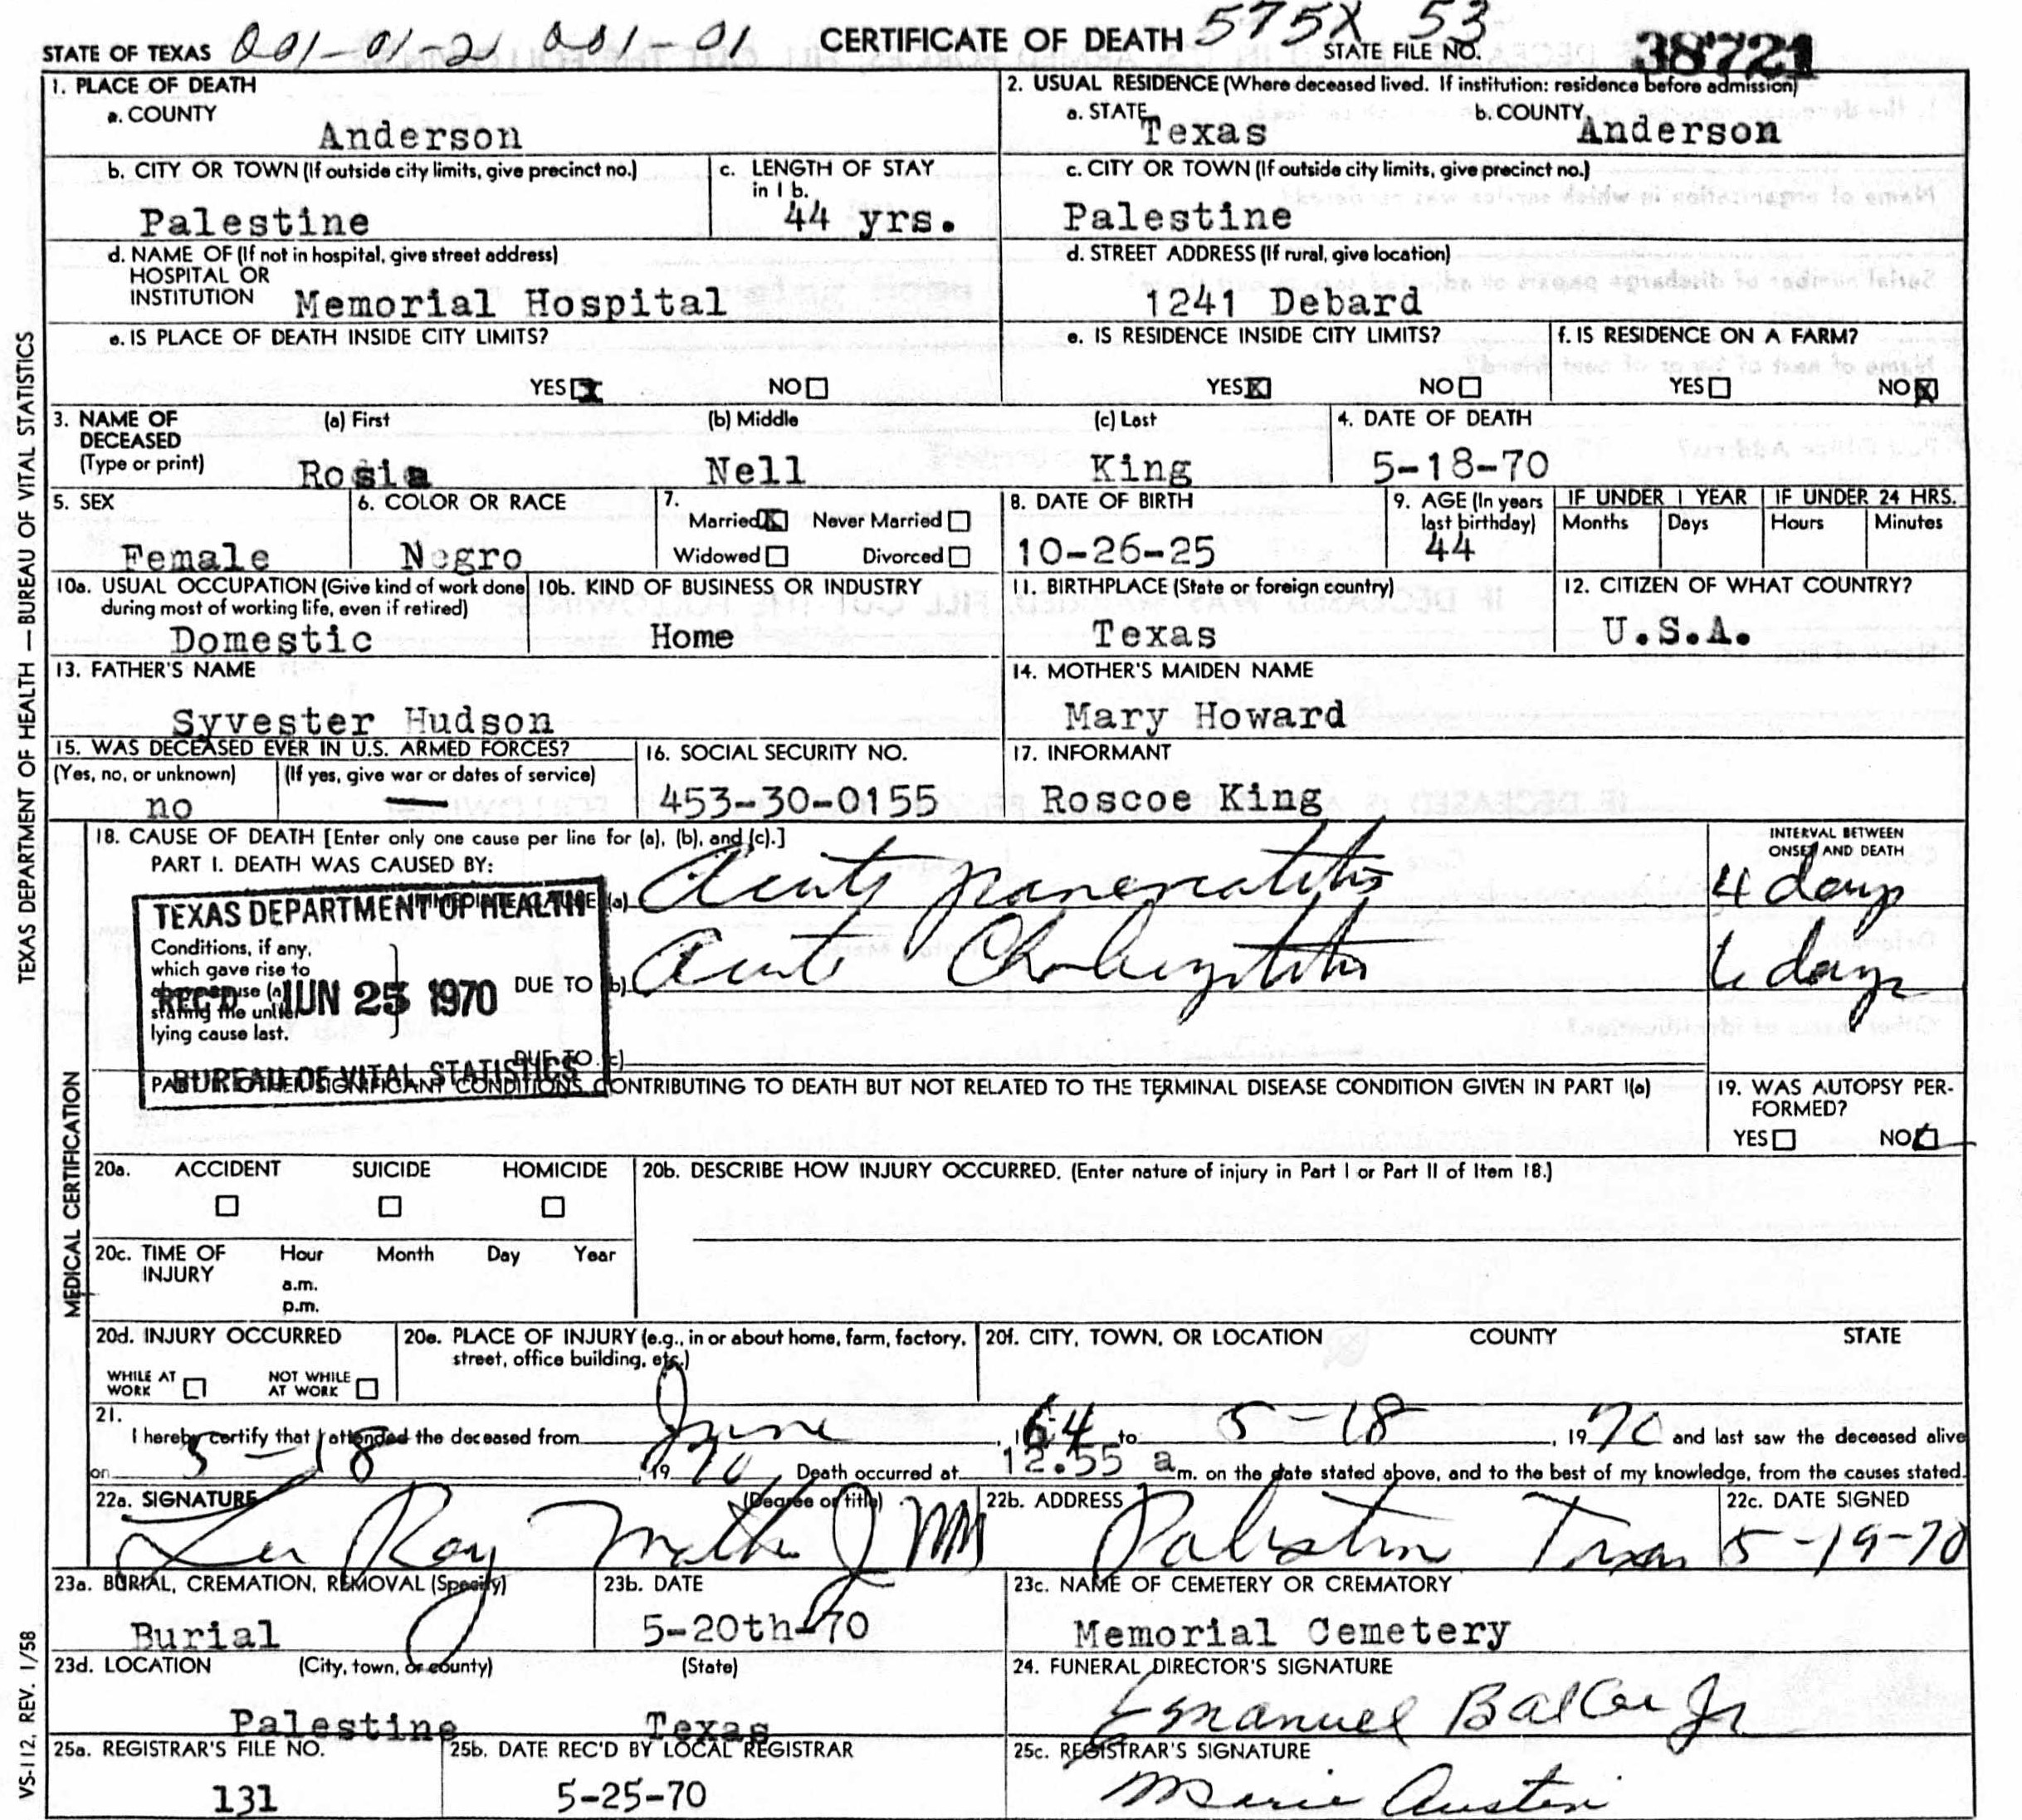 001-01-21 001-01 CERTIFICATE OF DEATH 575X 53
STATE OF TEXAS STATE FILE NO. 38721
1. PLACE OF DEATH
a. COUNTY
Anderson
2. USUAL RESIDENCE (Where deceased lived. If institution: residence before admission)
a. STATE Texas b. COUNTY Anderson
b. CITY OR TOWN (If outside city limits, give precinct no.)
Palestine
c. LENGTH OF STAY
in 1 b.
44 yrs.
c. CITY OR TOWN (If outside city limits, give precinct no.)
Palestine
d. NAME OF (If not in hospital, give street address)
HOSPITAL OR
INSTITUTION Memorial Hospital
d. STREET ADDRESS (If rural, give location)
1241 Debard
e. IS PLACE OF DEATH INSIDE CITY LIMITS?
YES X NO
e. IS RESIDENCE INSIDE CITY LIMITS?
YES X NO
f. IS RESIDENCE ON A FARM?
YES NO X
3. NAME OF
DECEASED
(Type or print)
(a) First (b) Middle (c) Last
Rosia Nell King
4. DATE OF DEATH
5-18-70
5. SEX
Female
6. COLOR OR RACE
Negro
7.
Married X Never Married
Widowed Divorced
8. DATE OF BIRTH
10-26-25
9. AGE (In years
last birthday)
44
IF UNDER 1 YEAR IF UNDER 24 HRS.
Months Days Hours Minutes
10a. USUAL OCCUPATION (Give kind of work done
during most of working life, even if retired)
Domestic
10b. KIND OF BUSINESS OR INDUSTRY
Home
11. BIRTHPLACE (State or foreign country)
Texas
12. CITIZEN OF WHAT COUNTRY?
U.S.A.
13. FATHER'S NAME
Syvester Hudson
14. MOTHER'S MAIDEN NAME
Mary Howard
15. WAS DECEASED EVER IN U.S. ARMED FORCES?
(Yes, no, or unknown) (If yes, give war or dates of service)
no —
16. SOCIAL SECURITY NO.
453-30-0155
17. INFORMANT
Roscoe King
18. CAUSE OF DEATH [Enter only one cause per line for (a), (b), and (c).]
PART I. DEATH WAS CAUSED BY:
IMMEDIATE CAUSE (a) Acute pancreatitis
INTERVAL BETWEEN
ONSET AND DEATH
4 days
TEXAS DEPARTMENT OF HEALTH
REC'D JUN 25 1970
BUREAU OF VITAL STATISTICS
Conditions, if any,
which gave rise to
above cause (a)
stating the under-
lying cause last.
DUE TO (b) Acute Cholecystitis
6 days
DUE TO (c)
PART II. OTHER SIGNIFICANT CONDITIONS CONTRIBUTING TO DEATH BUT NOT RELATED TO THE TERMINAL DISEASE CONDITION GIVEN IN PART I(a)
19. WAS AUTOPSY PER-
FORMED?
YES NO
20a. ACCIDENT SUICIDE HOMICIDE
20b. DESCRIBE HOW INJURY OCCURRED. (Enter nature of injury in Part I or Part II of Item 18.)
20c. TIME OF
INJURY
Hour Month Day Year
a.m.
p.m.
20d. INJURY OCCURRED
WHILE AT
WORK
NOT WHILE
AT WORK
20e. PLACE OF INJURY (e.g., in or about home, farm, factory,
street, office building, etc.)
20f. CITY, TOWN, OR LOCATION COUNTY STATE
21.
I hereby certify that I attended the deceased from June, 1964 to 5-18, 1970 and last saw the deceased alive
on 5-18, 1970, Death occurred at 12.55 a m. on the date stated above, and to the best of my knowledge, from the causes stated.
22a. SIGNATURE (Degree or title)
Lee Roy
22b. ADDRESS
Palestine Texas
22c. DATE SIGNED
5-19-70
23a. BURIAL, CREMATION, REMOVAL (Specify)
Burial
23b. DATE
5-20th-70
23c. NAME OF CEMETERY OR CREMATORY
Memorial Cemetery
23d. LOCATION (City, town, or county) (State)
Palestine Texas
24. FUNERAL DIRECTOR'S SIGNATURE
Emanuel Jr
25a. REGISTRAR'S FILE NO.
131
25b. DATE REC'D BY LOCAL REGISTRAR
5-25-70
25c. REGISTRAR'S SIGNATURE
Marie Austin
TEXAS DEPARTMENT OF HEALTH — BUREAU OF VITAL STATISTICS
MEDICAL CERTIFICATION
VS-112, REV. 1/58